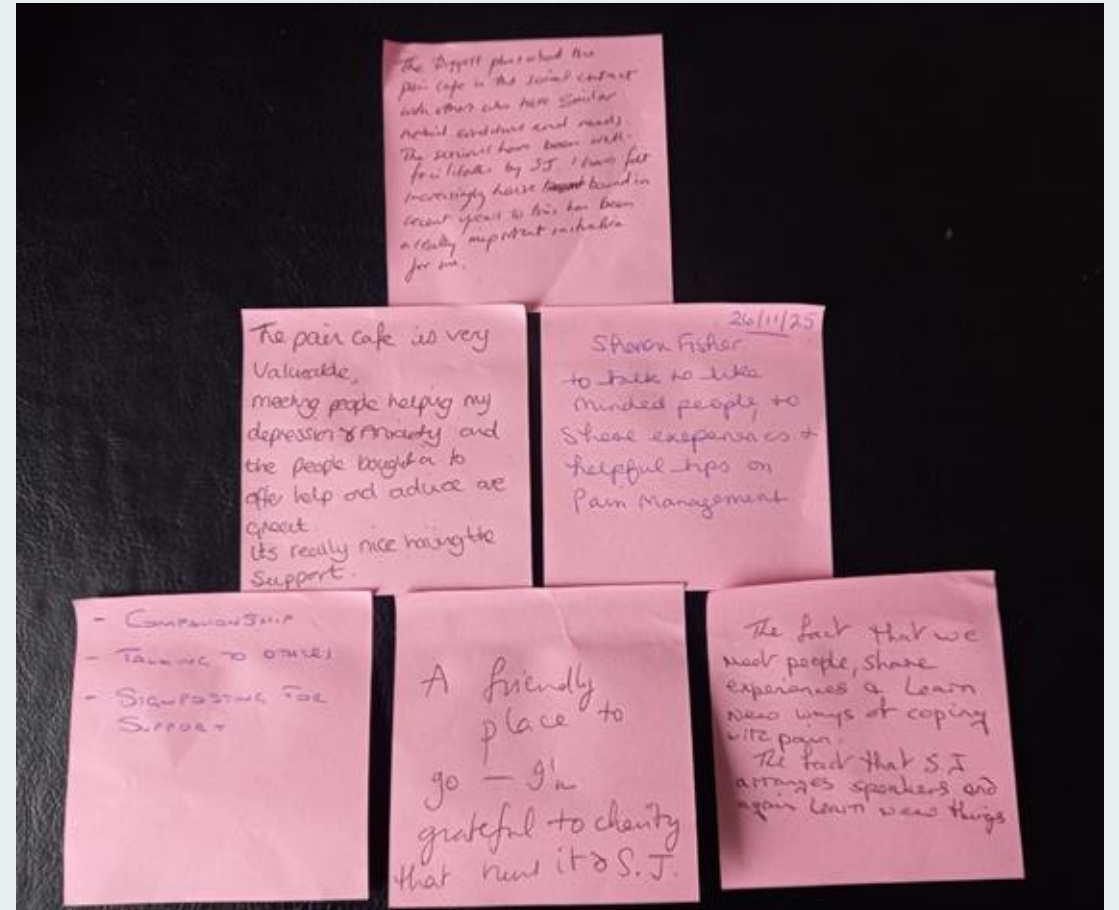 The biggest plus about the
pain cafe is the social contact
with others who have similar
conditions and needs.
The sessions have been well
facilitated by SJ I have felt
increasingly house bound in
recent years so this has been
a really important
for me.
The pain cafe is very
Valuable,
meeting people helping my
depression & Anxiety and
the people bought in to
offer help and advice are
great.
its really nice having the
Support.
26/11/25
Sharon Fisher
to talk to like
minded people, to
Share exeperiences +
helpful tips on
Pain Management
- COMPANIONSHIP
- TALKING TO OTHERS
- SIGNPOSTING FOR
SUPPORT
A friendly
place to
go — I'm
grateful to charity
that runs it & S.J.
The fact that we
meet people, share
experiences & Learn
new ways of coping
with pain.
The fact that S.J
arranges speakers and
again learn new things